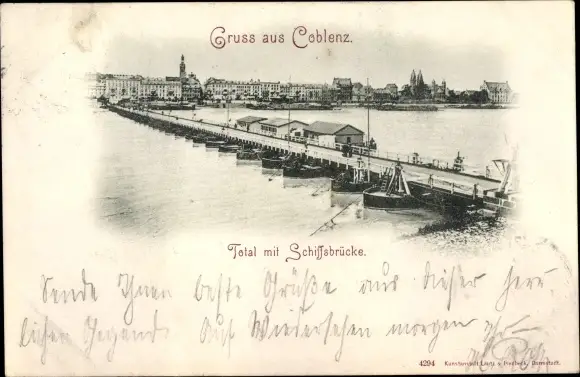 Gruss aus Coblenz.
Total mit Schiffsbrücke.
Sende Ihnen beste Grüße aus dieser herr
lichen Gegend. Auf Wiedersehen morgen
4294 Kunstanstalt Lautz & Darmstadt.